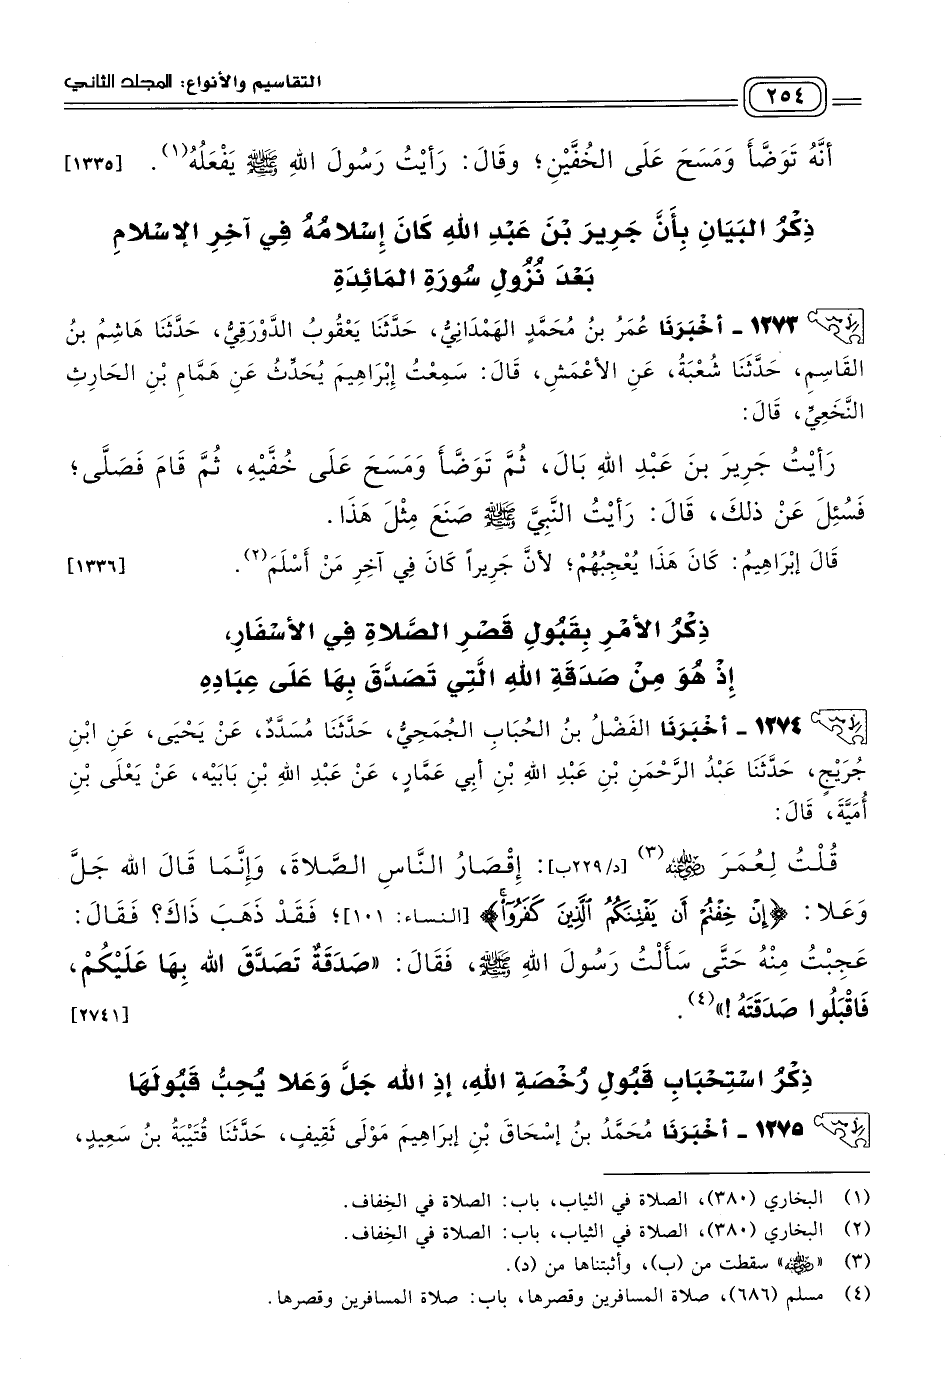 التقاسيم والأنواع: المجلد الثاني
٢٥٤
أنَّهُ تَوَضَّأَ وَمَسَحَ عَلَى الخُفَّيْنِ؛ وقَالَ: رَأيْتُ رَسُولَ اللهِ ﷺ يَفْعَلُهُ(١). [١٣٣٥]
ذِكْرُ البَيَانِ بِأَنَّ جَرِيرَ بْنَ عَبْدِ اللهِ كَانَ إسْلامُهُ فِي آخِرِ الإسْلامِ
بَعْدَ نُزُولِ سُورَةِ المَائِدَةِ
١٢٧٣ - أخْبَرَنَا عُمَرُ بنُ مُحَمَّدٍ الهَمْدَانِيُّ، حَدَّثَنَا يَعْقُوبُ الدَّوْرَقِيُّ، حَدَّثَنَا هَاشِمُ بنُ
القَاسِمِ، حَدَّثَنَا شُعْبَةُ، عَنِ الأعْمَشِ، قَالَ: سَمِعْتُ إبْرَاهِيمَ يُحَدِّثُ عَن هَمَّامِ بْنِ الحَارِثِ
النَّخَعِيِّ، قَالَ:
رَأيْتُ جَرِيرَ بنَ عَبْدِ اللهِ بَالَ، ثُمَّ تَوَضَّأَ وَمَسَحَ عَلَى خُفَّيْهِ، ثُمَّ قَامَ فَصَلَّى؛
فَسُئِلَ عَنْ ذلكَ، قَالَ: رَأيْتُ النَّبِيَّ ﷺ صَنَعَ مِثْلَ هَذَا.
قَالَ إبْرَاهِيمُ: كَانَ هَذَا يُعْجِبُهُمْ؛ لأنَّ جَرِيراً كَانَ فِي آخِرِ مَنْ أَسْلَمَ(٢). [١٣٣٦]
ذِكْرُ الأمْرِ بِقَبُولِ قَصْرِ الصَّلاةِ فِي الأسْفَارِ،
إذْ هُوَ مِنْ صَدَقَةِ اللهِ الَّتِي تَصَدَّقَ بِهَا عَلَى عِبَادِهِ
١٢٧٤ - أخْبَرَنَا الفَضْلُ بنُ الحُبَابِ الجُمَحِيُّ، حَدَّثَنَا مُسَدَّدٌ، عَنْ يَحْيَى، عَنِ ابْنِ
جُرَيْجٍ، حَدَّثَنَا عَبْدُ الرَّحْمَنِ بْنِ عَبْدِ اللهِ بْنِ أبي عَمَّارٍ، عَنْ عَبْدِ اللهِ بْنِ بَابَيْه، عَنْ يَعْلَى بْنِ
أُمَيَّةَ، قَالَ:
قُلْتُ لِعُمَرَ رضي الله عنه(٣) [د/٢٢٩ب]: إقْصَارُ النَّاسِ الصَّلاةَ، وَإنَّمَا قَالَ الله جَلَّ
وَعَلا: ﴿إِنْ خِفْتُمْ أَن يَفْتِنَكُمُ الَّذِينَ كَفَرُوٓاْ﴾ [النساء: ١٠١]؛ فَقَدْ ذَهَبَ ذَاكَ؟ فَقَالَ:
عَجِبْتُ مِنْهُ حَتَّى سَألْتُ رَسُولَ اللهِ ﷺ، فَقَالَ: «صَدَقَةٌ تَصَدَّقَ الله بِهَا عَلَيْكُمْ،
فَاقْبَلُوا صَدَقَتَهُ!»(٤). [٢٧٤١]
ذِكْرُ اسْتِحْبَابِ قَبُولِ رُخْصَةِ اللهِ، إذِ الله جَلَّ وَعَلا يُحِبُّ قَبُولَهَا
١٢٧٥ - أخْبَرَنَا مُحَمَّدُ بنُ إسْحَاقَ بْنِ إبرَاهِيمَ مَوْلَى ثَقِيفٍ، حَدَّثَنَا قُتَيْبَةُ بنُ سَعِيدٍ،
(١) البخاري (٣٨٠)، الصلاة في الثياب، باب: الصلاة في الخِفاف.
(٢) البخاري (٣٨٠)، الصلاة في الثياب، باب: الصلاة في الخِفاف.
(٣) «رضي الله عنه» سقطت من (ب)، وأثبتناها من (د).
(٤) مسلم (٦٨٦)، صلاة المسافرين وقصرها، باب: صلاة المسافرين وقصرها.